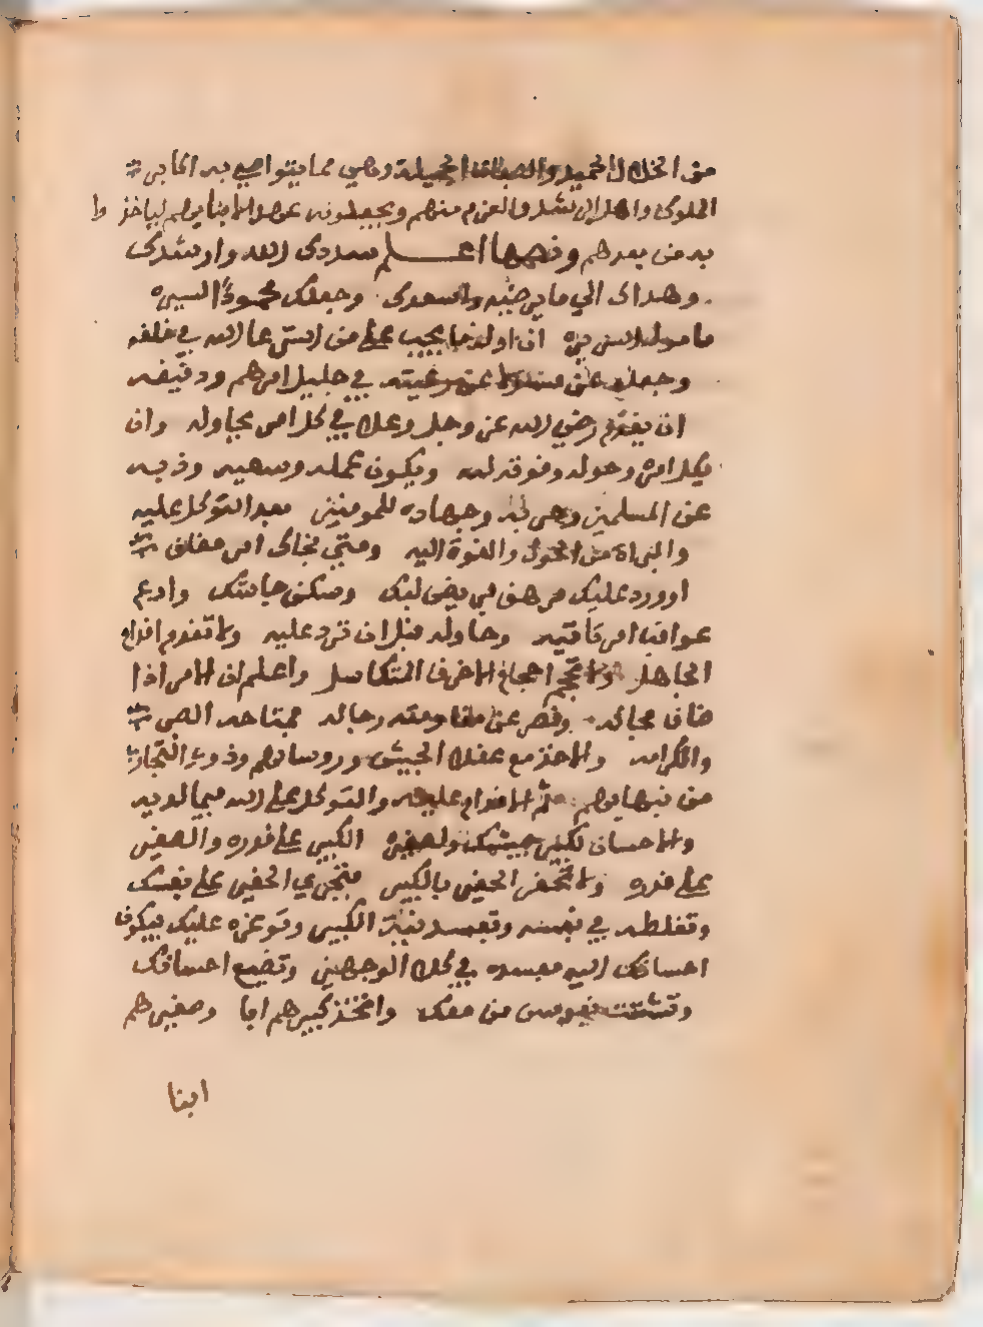 من الخلال الحميدة والصفات الجميلة وهي مما يتواصى به اكابر
الملوك واهل الرشد والعزم منهم ويجعلونه عهدا لابنايهم لياخذوا
به من بعدهم ونصها اعلم سددك الله وارشدك
وهداك الي ما يرضيه واسعدك وجعلك محمود السيره
مامول السريره ان اول ما يجب على من استرعاه الله في خلقه
وجعله عن رعيته في جليل امرهم ودقيقه
ان يقدم رضي الله عز وجل وعلا في كل امر يحاوله وان
يكل امره وحوله وقوته لله ويكون عمله وسعيه وذبه
عن المسلمين وحربه وجهاده للمومنين بعد التوكل عليه
والبراة من الحول والقوة اليه ومتي فجاك امر مقلق
او ورد عليك مرهق فريض لبك وسكن جاشك وارع
عواقب امر تاتيه وحاوله قبل ان ترد عليه ولا تقدم اقدام
الجاهل ولا تحجم احجام الاخرق المتكاسل واعلم ان الامر اذا
ضاق مجاله وقصر عن مقاومته رجاله فمفتاحه الصبر
والحزامه والاخذ مع عقلا الجيش وروسايهم وذوي التجارب
من نبهايهم ثم الاقدام عليه والتوكل على الله فيما لديه
والاحسان لكبير جيشك ولصغيره الكبير على قدره والصغير
على قدره ولا تلحق الحقير بالكبير فتجري الحقير على نفسك
وتغلطه في نفسه وتفسد نية الكبير وتوعره عليك فيكون
احسانك اليه مفسده في كلا الوجهين وتضيع احسانك
وتشتت نفوس من معك واتخذ كبيرهم ابا وصغيرهم
ابنا